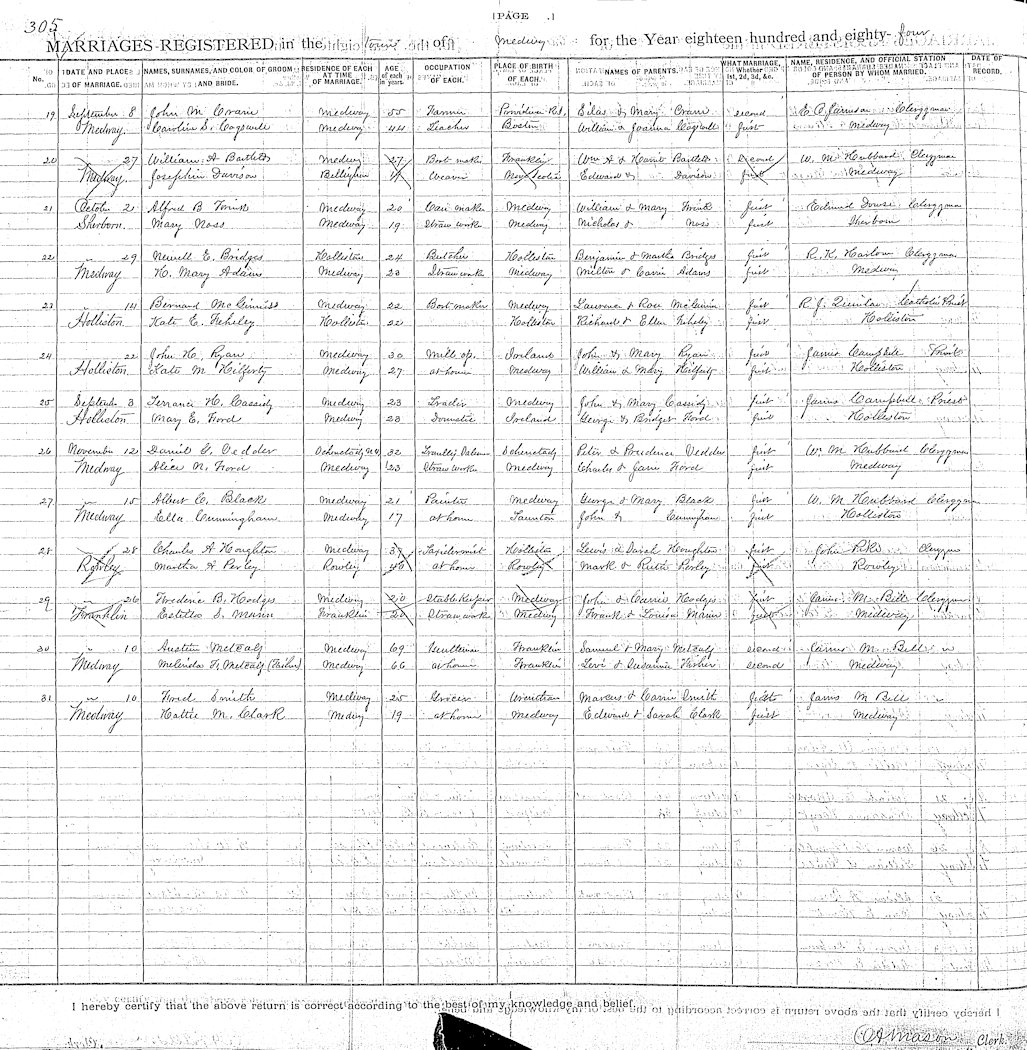 305
[PAGE .]
MARRIAGES REGISTERED in the Town of Medway for the Year eighteen hundred and eighty-four
No. DATE AND PLACE OF MARRIAGE. NAMES, SURNAMES, AND COLOR OF GROOM AND BRIDE. RESIDENCE OF EACH AT TIME OF MARRIAGE. AGE of each in years. OCCUPATION OF EACH. PLACE OF BIRTH OF EACH. NAMES OF PARENTS. WHAT MARRIAGE, Whether 1st, 2d, 3d, &c. NAME, RESIDENCE, AND OFFICIAL STATION OF PERSON BY WHOM MARRIED. DATE OF RECORD.
19 September 8 John M. Crane Medway 55 Farmer Silas & Mary Crane second Clergyman
Medway. Medway 44 Teacher Boston William & Joanna Cogswell first Medway
20 " 27 William A Bartlett Medway 27 Boot maker Franklin Wm A & Harriet Bartlett second W. M. Hubbard Clergyman
Medway. Josephine Davison Bellingham Weaver Nova Scotia Edward & Davison first Medway
21 October 21 Alfred B. Medway 20 maker Medway William & Mary first Edmund Dowse Clergyman
Sherborn. Mary Ross Medway 19 Straw work Medway Nicholas & Ross first Sherborn
22 " 29 Newell E. Bridges Holliston 24 Butcher Holliston Benjamin & Martha Bridges first R. K. Harlow Clergyman
Medway H. Mary Adams Medway 23 Straw work Medway Milton & Carrie Adams first Medway
23 " 14 Bernard McGinnis Medway 22 Boot maker Medway Lawrence & Rose McGinnis first R. J. Quinlan Catholic Priest
Holliston Kate E. Feheley Holliston 22 Holliston Richard & Ellen Feheley first Holliston
24 " 22 John H. Ryan Medway 30 Mill op. Ireland John & Mary Ryan first James Campbell Priest
Holliston. Kate M Hilferty Medway 27 at home Medway William & Mary Hilferty first Holliston
25 September 3 Terrance H. Cassidy Medway 23 Medway John & Mary Cassidy first James Campbell Priest
Holliston Mary E. Ford Medway 23 Domestic Ireland George & Bridget Ford first Holliston
26 November 12 Daniel G. Vedder Schenectady N.Y. 32 Schenectady Peter & Prudence Vedder first Wm M Hubbard Clergyman
Medway Alice N. Ford Medway 23 Straw worker Medway Charles & Jane Ford first Medway
27 " 15 Albert C. Black Medway 21 Painter Medway George & Mary Black first W. M Hubbard Clergyman
Medway. Ella Cunningham Medway 17 at home Taunton John & Cunningham first Holliston
28 " 28 Charles A Houghton Medway 37 Taxidermist Holliston Lewis & Sarah Houghton first John Pike Clergyman
Rowley Martha A Perley Rowley 46 at home Rowley Mark & Ruth Perley first Rowley
29 " 26 Frederic B. Hodges Medway 20 Stable Keeper Medway John & Carrie Hodges first James M. Bell Clergyman
Franklin Estella S. Mann Franklin 20 Straw work Medway Frank & Louisa Mann first Medway
30 " 10 Austin Metcalf Medway 69 Gentleman Franklin Samuel & Mary Metcalf second James M. Bell "
Medway Melinda F. Metcalf (Fisher) Medway 66 at home Franklin Levi & Susanna Fisher second Medway
31 " 10 Fred Smith Medway 25 Grocer Wrentham Marcus & Carrie Smith first James M Bell "
Medway Hattie M. Clark Medway 19 at home Medway Edward & Sarah Clark first Medway
I hereby certify that the above return is correct according to the best of my knowledge and belief.
O A Mason Clerk.